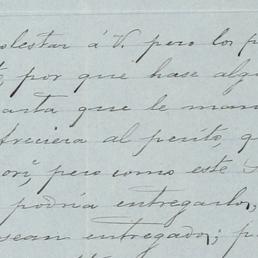 olestar á V. pero los p
por que hase alg
arta que le man
treciera al perito, q
ori", pero como este
podria entregarlo,
sean entregado; p